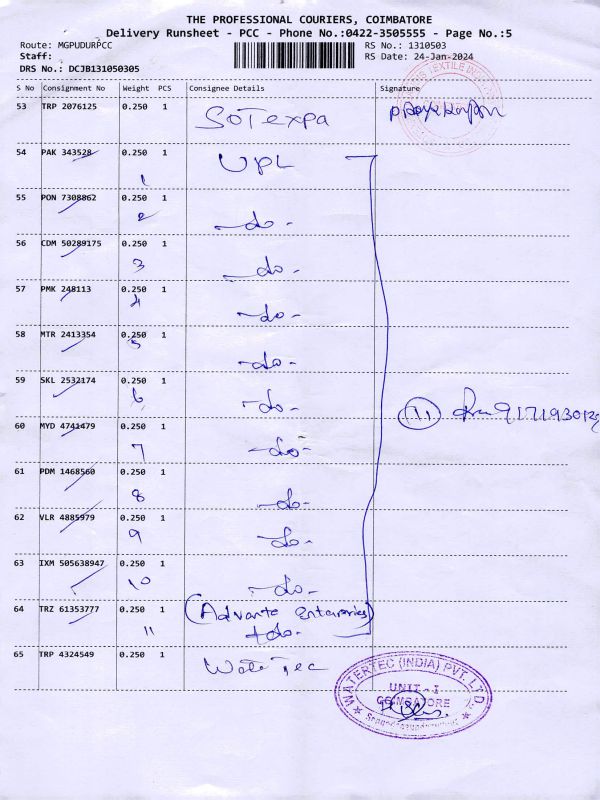 THE PROFESSIONAL COURIERS, COIMBATORE
Delivery Runsheet - PCC - Phone No.:0422-3505555 - Page No.:5
Route: MGPUDURPCC RS No.: 1310503
Staff: RS Date: 24-Jan-2024
DRS No.: DCJB131050305
S No Consignment No Weight PCS Consignee Details Signature
53 TRP 2076125 0.250 1 SOTexpa
54 PAK 343528 0.250 1 UPL
1
55 PON 7308862 0.250 1
2 -do-
56 CDM 50289175 0.250 1
3 -do-
57 PMK 248113 0.250 1
4 -do-
58 MTR 2413354 0.250 1
5 -do-
59 SKL 2532174 0.250 1
6 -do-
60 MYD 4741479 0.250 1 11
7 -do-
61 PDM 1468560 0.250 1
8 -do-
62 VLR 4885979 0.250 1
9 -do-
63 IXM 505638947 0.250 1
10 -do-
64 TRZ 61353777 0.250 1 (Advante Enterprises)
11 -do-
65 TRP 4324549 0.250 1 WateTec
WATERTEC (INDIA) PVT. LTD.
UNIT - I
COIMBATORE